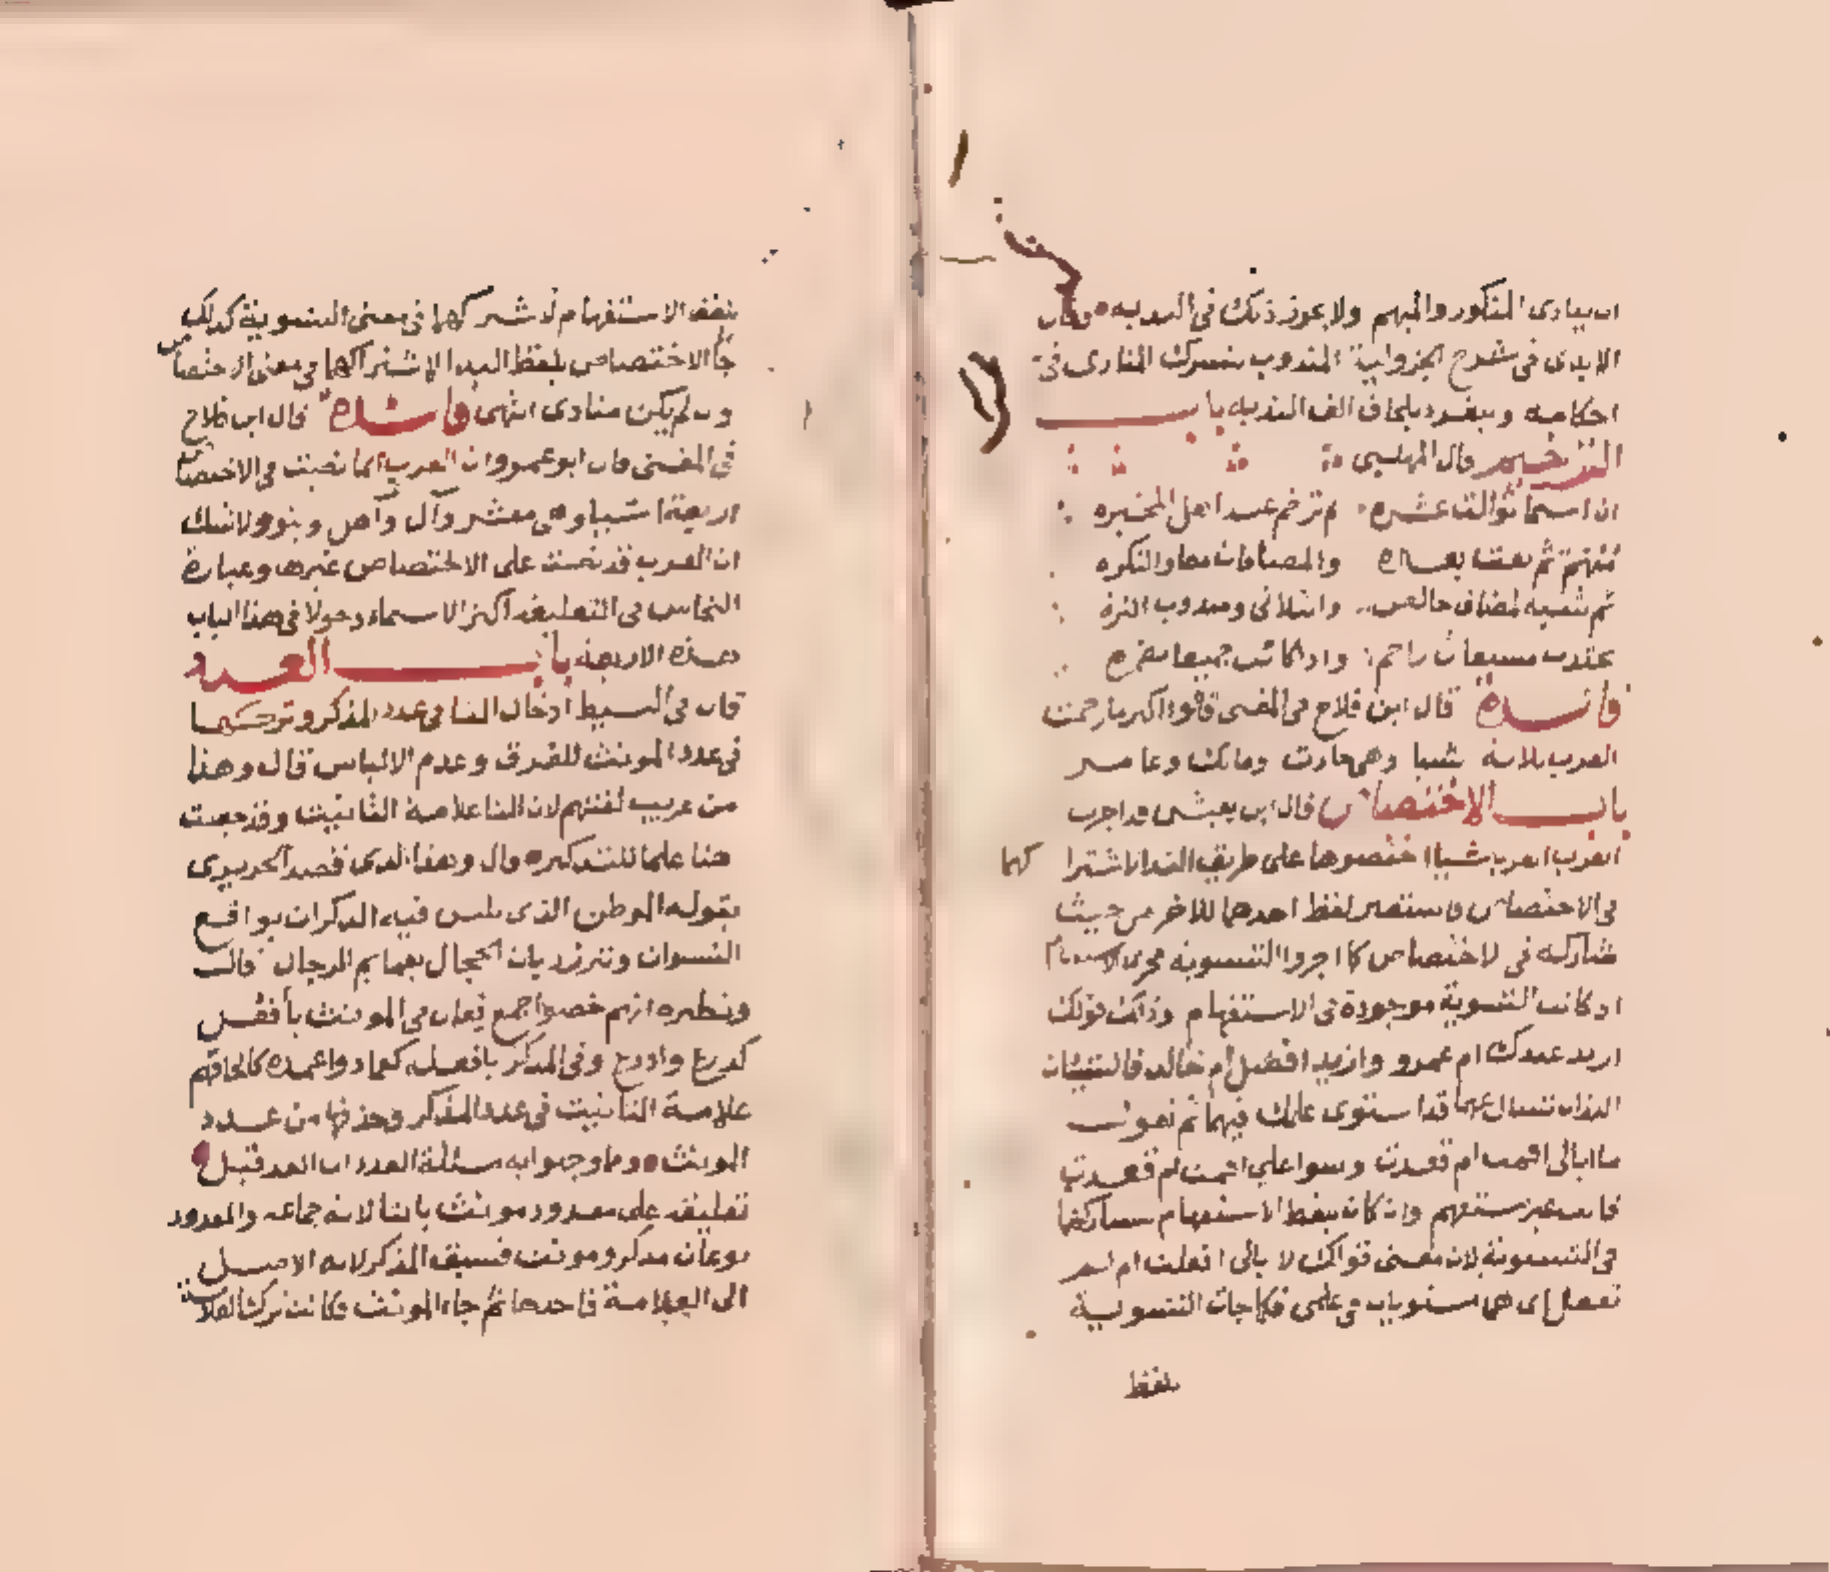 ان ينادى المنكور والمبهم ولا يجوز ذلك فى الندبة وقال
الابدى فى شرح الجزولية المندوب يشرك المنادى فى
احكامه وينفرد بلحاق الف الندبة باب
الترخيم قال المهلبى
ان اسما توالت عشره لم ترخم عند اهل المخبره
مبهم ثم نعت بعده والمضافات معا والنكره
ثم شبيه لمضاف خالص والثلاثى ومندوب
فائدة قال ابن فلاح فى المغنى قالوا اكثر ما رخمت
العرب ثلاثة شيا وهى حارث ومالك وعامر
باب الاختصاص قال ابن يعيش قد اجرت
العرب شيا اختصوها على طريق الندا لاشترا كهما
فى الاختصاص فاستعير لفظ احدهما للاخر من حيث
شاركه فى الاختصاص كما اجروا التسوية مجرى الاستفهام
اذ كانت التسوية موجودة فى الاستفهام وذلك قولك
ازيد عندك ام عمرو وازيد افضل ام خالد فالشيئان
اللذان تسال عنهما قد استوى علمك فيهما ثم تقول
ما ابالى اقمت ام قعدت وسوا على اقمت ام قعدت
فانت غير مستفهم وان كان بلفظ الاستفهام لتشاركهما
فى التسوية لان معنى قولك لا ابالى افعلت ام لم
تفعل اى هما مستويان فى علمى فكما جات التسوية
بلفظ
بلفظ الاستفهام لاشتراكهما فى معنى التسوية كذلك
جا الاختصاص بلفظ الندا لاشتراكهما فى معنى الاختصاص
وان لم يكن منادى انتهى فائدة قال ابن فلاح
فى المغنى قال ابو عمرو ان العرب انما نصبت فى الاختصاص
اربعة اشيا وهى معشر وآل واهل وبنو ولا شك
ان العرب قد نصبت على الاختصاص غيرها وعبارة
النحاس فى التعليقة اكثر الاسماء دخولا فى هذا الباب
هذه الاربعة باب العدد
قال فى البسيط ادخال التا فى عدد المذكر وتركها
فى عدد المونث للفرق وعدم الالباس قال وهذا
من غريب لغتهم لان التا علامة التانيث وقد جعلت
هنا علما للتذكير قال وهذا الذى قصد الحريرى
بقوله الموطن الذى يلبس فيه الذكران براقع
النسوان وتبرز ربات الحجال بعمايم الرجال قال
ونظيره انهم خصوا جمع فعال فى المونث بأفعل
كذراع واذرع وفى المذكر بافعله كعماد واعمدة كالحاقهم
علامة التانيث فى عدد المذكر وحذفها من عدد
المونث وما وجهوا به مسئلة العدد ان العدد قبل
تعليقه على معدود مونث بالتا لانه جماعه والمعدود
نوعان مذكر ومونث فسبق المذكر لانه الاصل
الى العلامة فاخذها ثم جاء المونث فكان ترك العلامة